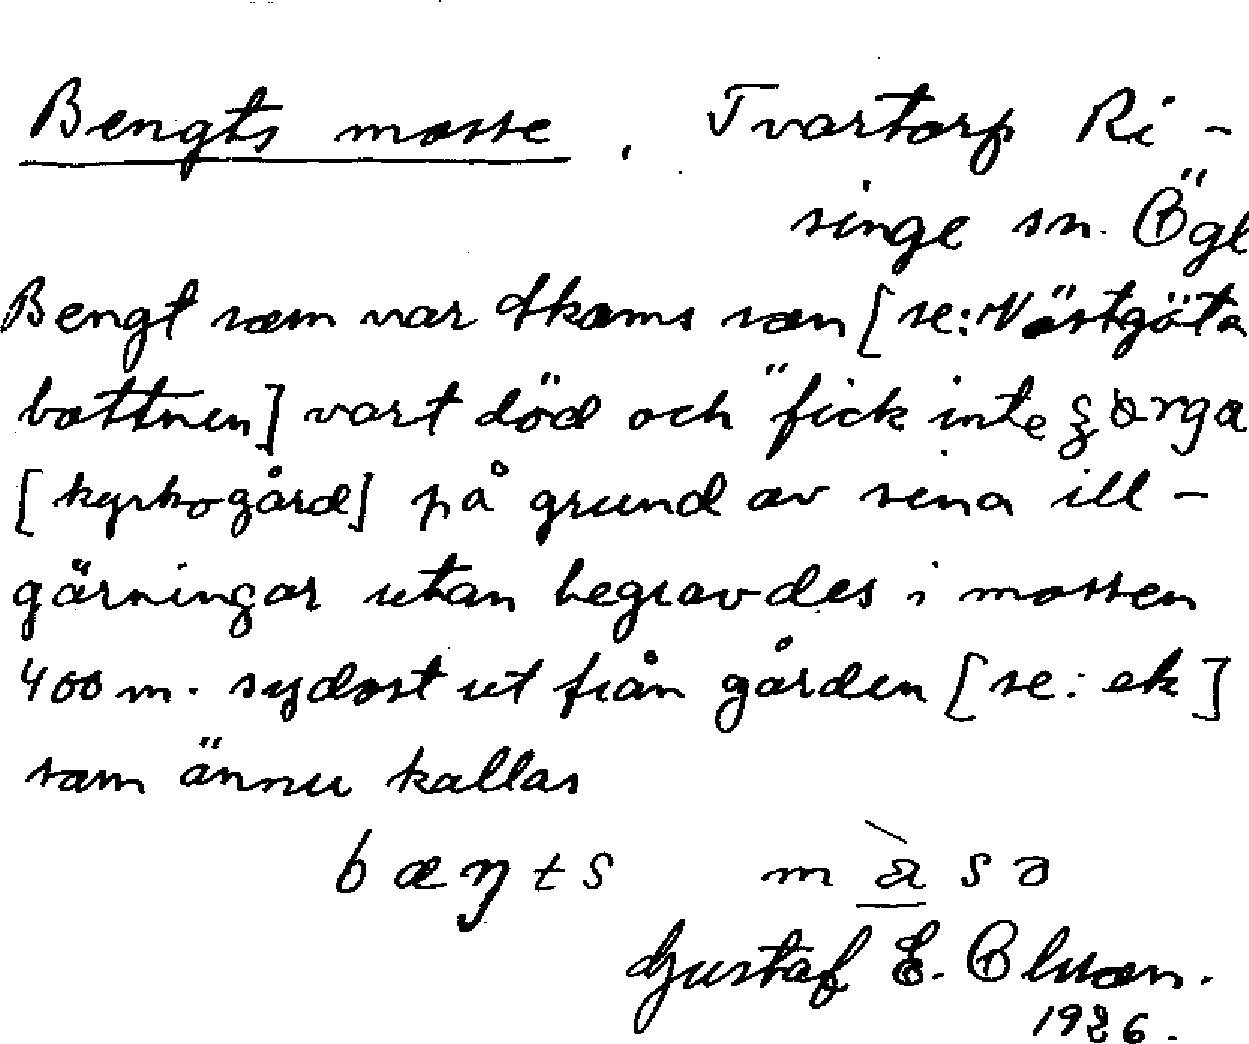 Bengts mosse, Tvartorp Ri-
singe sn. Ögl
Bengt som var Åkoms son [se: Västgöta
bottnen] vart död och "fick inte
[kyrkogård] på grund av sina ill-
gärningar utan begravdes i mossen
400 m. sydost ut från gården [se: ek]
som ännu kallas
bæŋts
Gustaf E. Olsson.
1926.